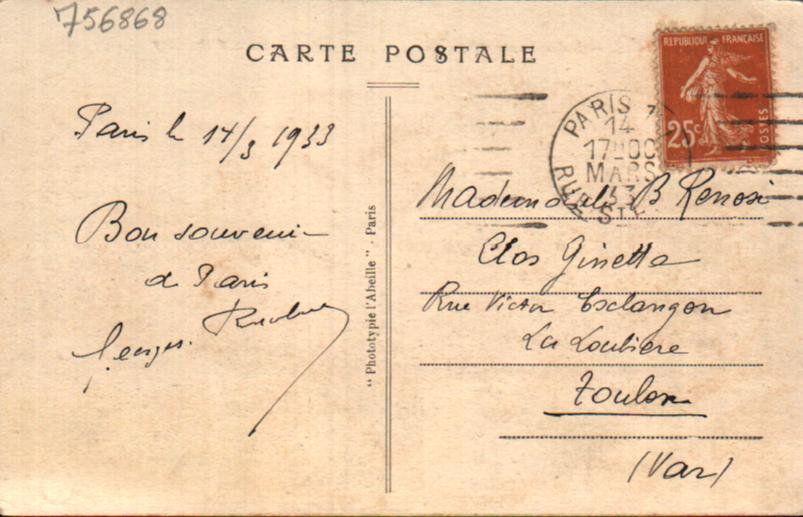 756868
CARTE POSTALE
REPUBLIQUE FRANÇAISE
25c
POSTES
PARIS
14
17H00
MARS
33
RUE STE
Paris le 14/3 1933
Bon souvenir
de Paris
Georges
"Phototypie l'Abeille" - Paris
Mademoiselle B Renosi
Clos Ginette
Rue Victor Esclangon
La Loubiere
Toulon
(Var)